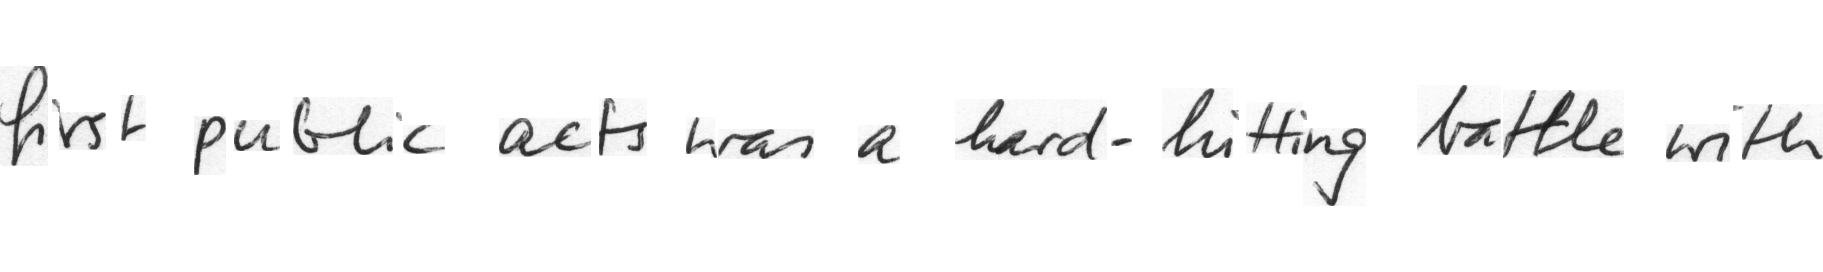 first public acts was a hard-hitting battle with